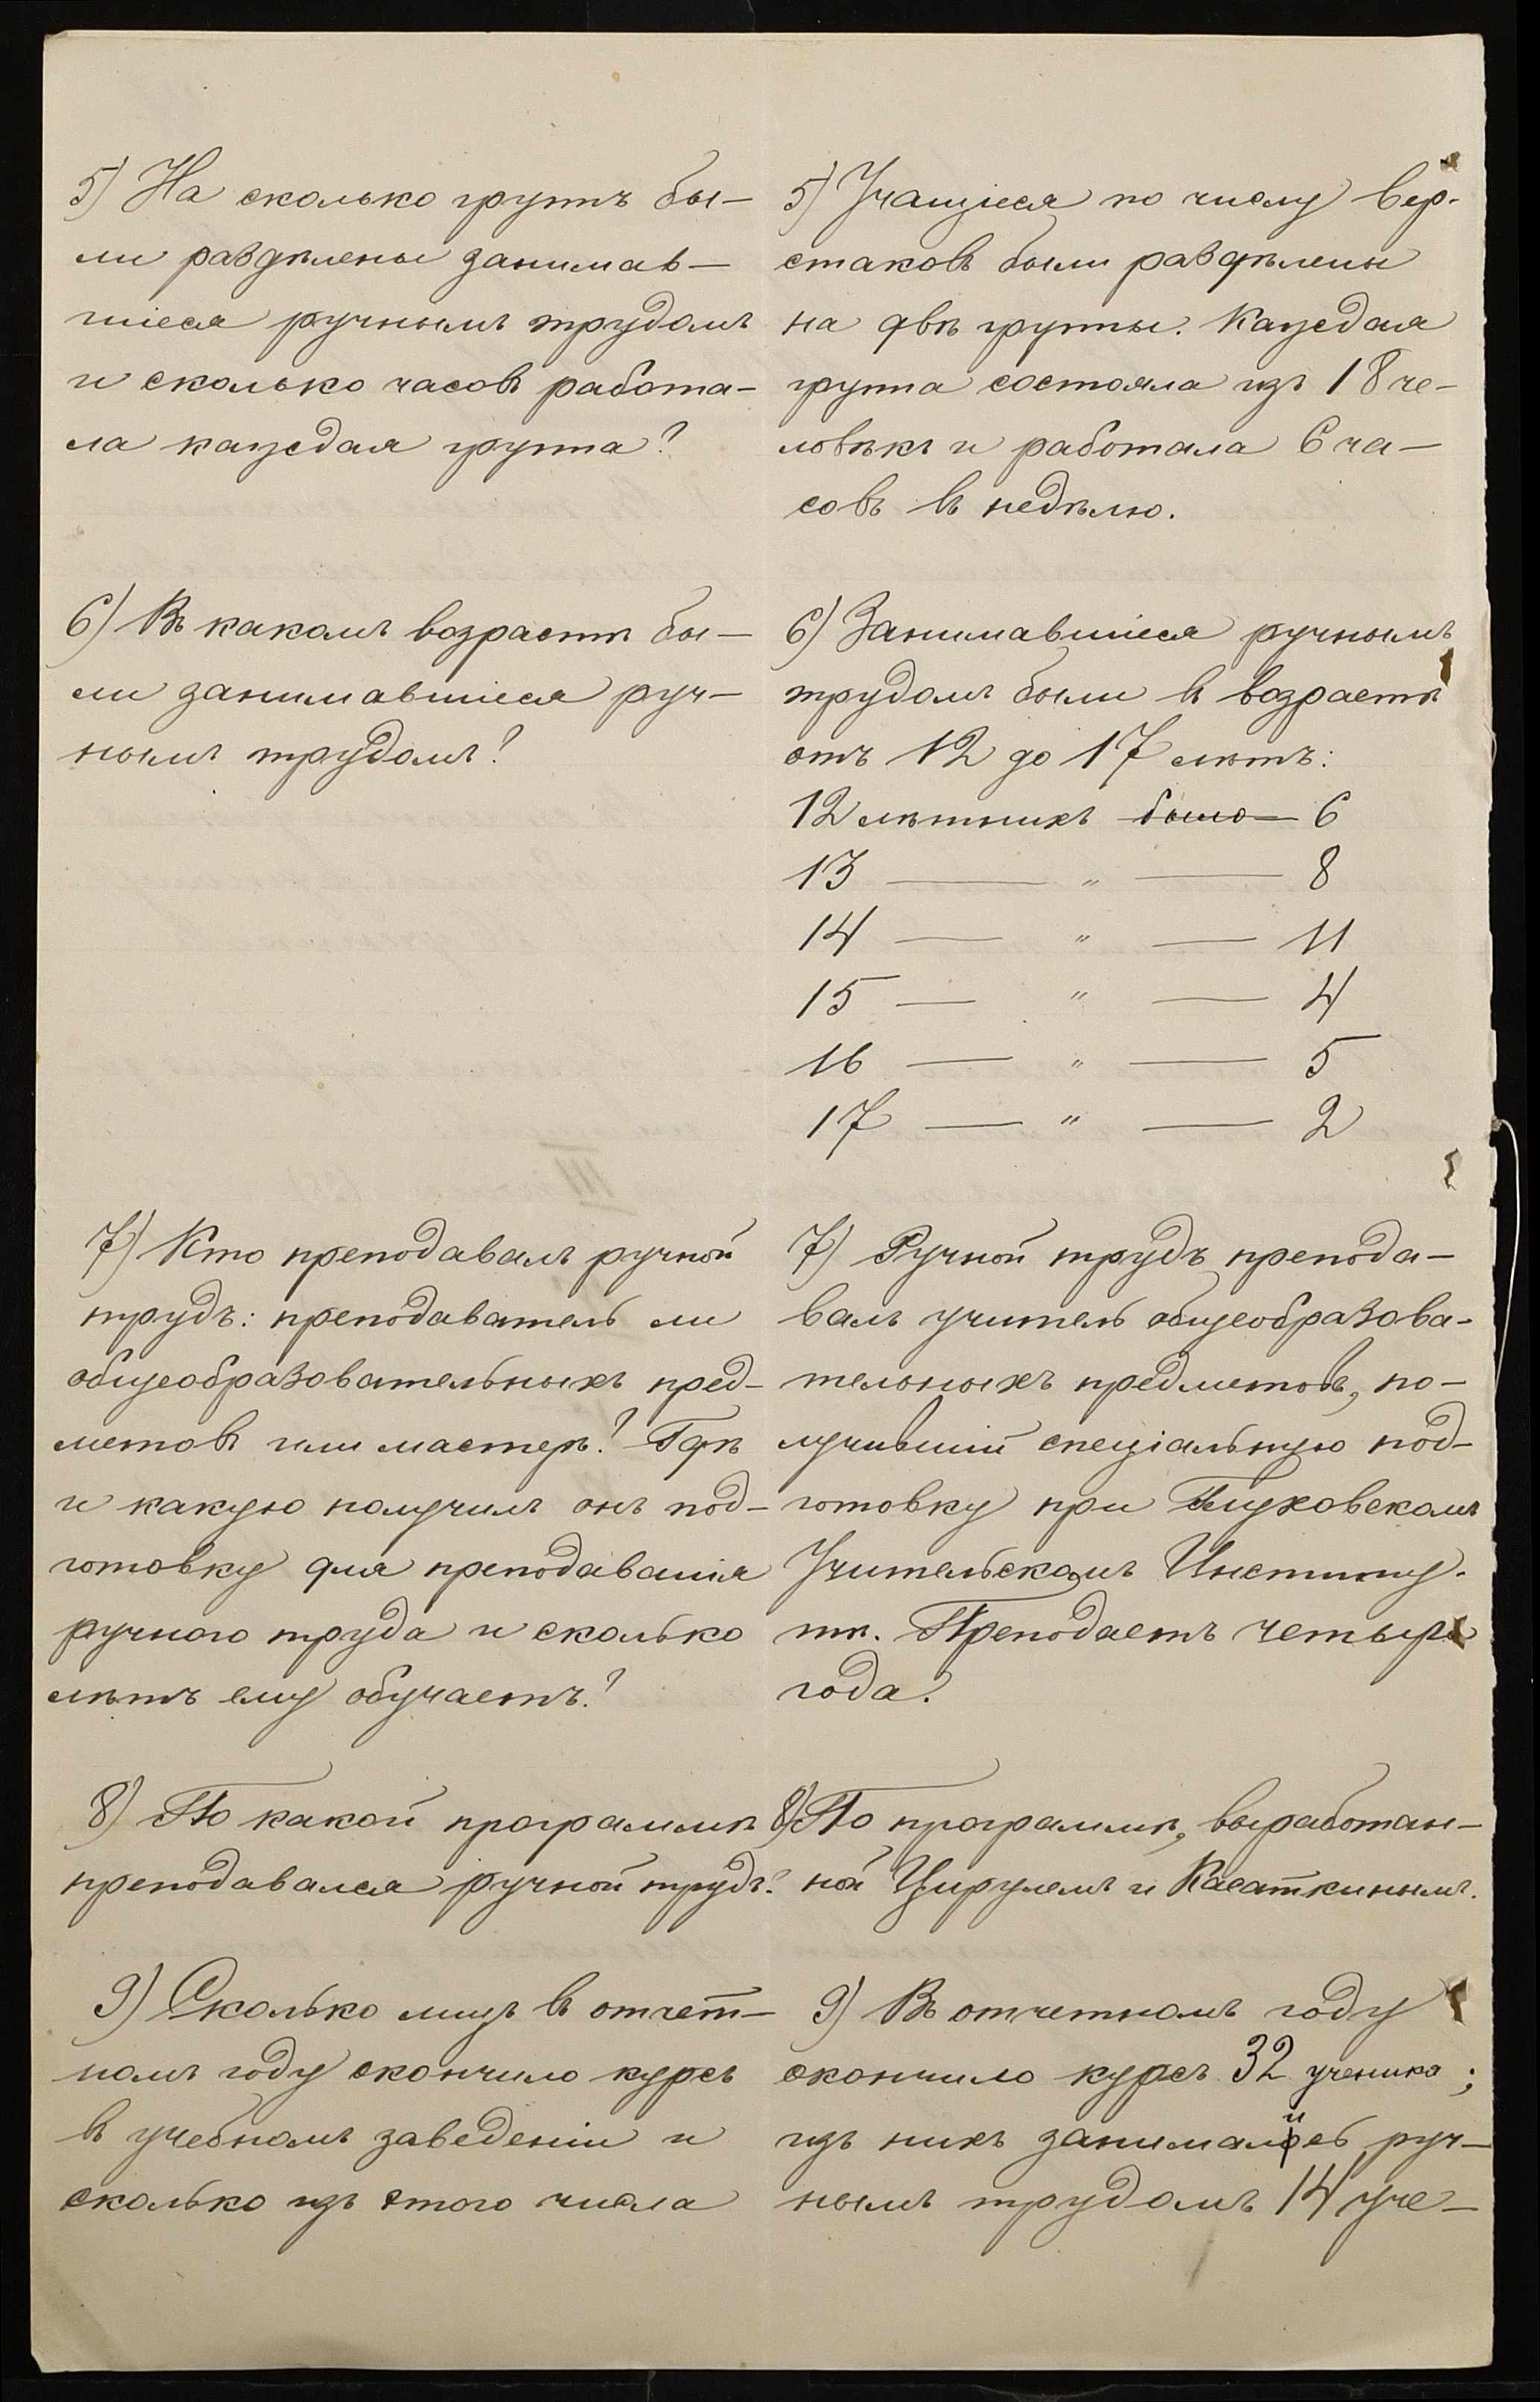 5) На сколько группъ бы-
ли раздѣлены занимав-
шіеся ручнымъ трудомъ
и сколько часовъ работа-
ла каждая группа?
5) Учащіеся по числу вер-
стаковъ были раздѣлены
на двѣ группы. Каждая
группа состояла изъ 18 че-
ловѣкъ и работала 6 ча-
совъ въ недѣлю.
6) Въ какомъ возрастѣ бы-
ли занимавшіеся руч-
нымъ трудомъ?
6) Занимавшіеся ручнымъ
трудомъ были въ возрастѣ
отъ 12 до 17 лѣтъ:
12 лѣтнихъ было — 6
13 — " — 8
14 — " — 11
15 — " — 4
16 — " — 5
17 — " — 2
7) Кто преподавалъ ручной
трудъ: преподаватель ли
общеобразовательныхъ пред-
метовъ или мастеръ? Гдѣ
и какую получилъ онъ под-
готовку для преподаванія
ручного труда и сколько
лѣтъ ему обучаетъ?
7) Ручной трудъ препода-
валъ учитель общеобразова-
тельныхъ предметовъ, по-
лучившій спеціальную под-
готовку при Глуховскомъ
Учительскомъ Институ-
тѣ. Преподаетъ четыре
года.
8) По какой программѣ
преподавался ручной трудъ?
8) По программѣ, выработан-
ной Цирулемъ и Касаткинымъ.
9) Сколько лицъ въ отчет-
номъ году окончило курсъ
въ учебномъ заведеніи и
сколько изъ этого числа
9) Въ отчетномъ году
окончило курсъ 32 ученика;
изъ нихъ занимались руч-
нымъ трудомъ 14 уче-